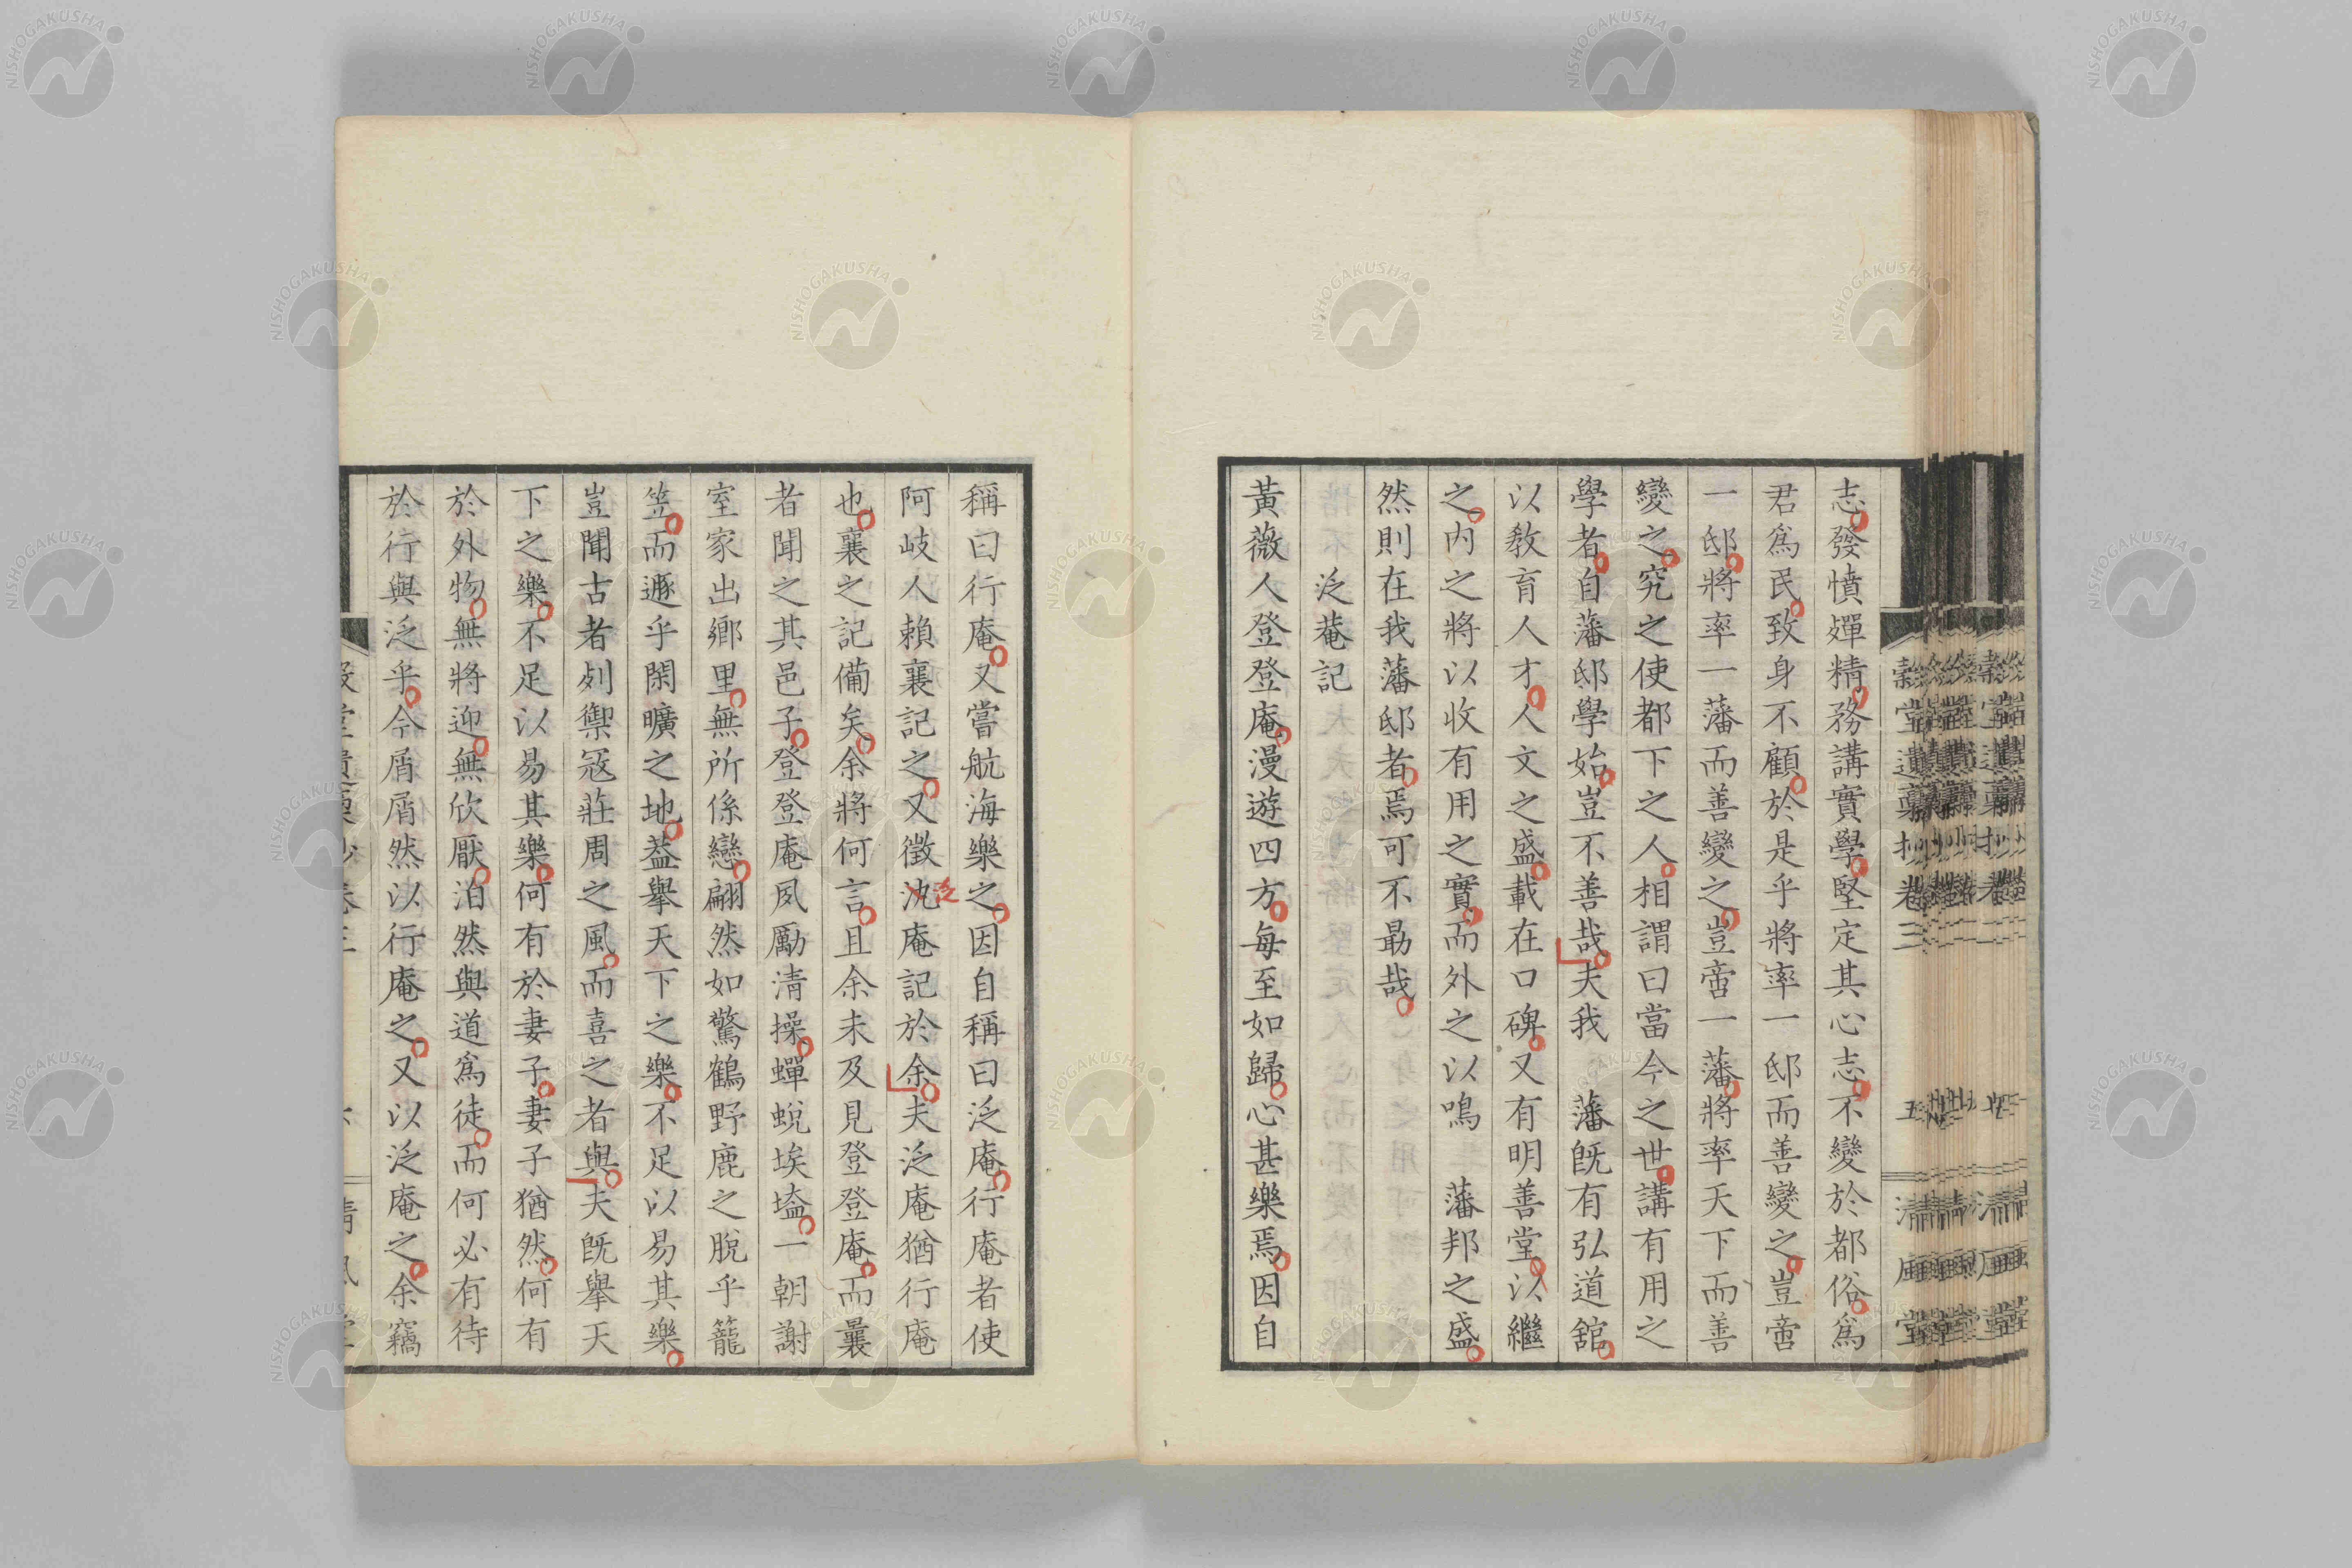 志發憤嬋精務講實學堅定其心志不變於都俗爲
君爲民致身不顧於是乎將率一邸而善變之豈啻
一邸將率一藩而善變之豈啻一藩將率天下而善
變之究之使都下之人相謂曰當今之世講有用之
學者自藩邸學始豈不善哉夫我 藩旣有弘道舘
以敎育人才人文之盛載在口碑又有明善堂以繼
之內之將以收有用之實而外之以鳴 藩邦之盛
然則在我藩邸者焉可不勗哉
泛菴記
黃薇人登登庵漫遊四方每至如歸心甚樂焉因自
稱曰行庵又嘗航海樂之因自稱曰泛庵行庵者使
阿岐人賴襄記之又徵沈庵記於余夫泛庵猶行庵
泛
也襄之記備矣余將何言且余未及見登登庵而曩
者聞之其邑子登登庵夙勵清操蟬蛻埃壒一朝謝
室家出鄉里無所係戀翩然如驚鶴野鹿之脫乎籠
笠而遯乎閑曠之地葢擧天下之樂不足以易其樂
豈聞古者列禦冦莊周之風而喜之者與夫旣擧天
下之樂不足以易其樂何有於妻子妻子猶然何有
於外物無將迎無欣厭泊然與道爲徒而何必有待
於行與泛乎今屑屑然以行庵之又以泛庵之余竊
穀堂遺稾抄卷三
五
清風堂
NISHOGAKUSHA